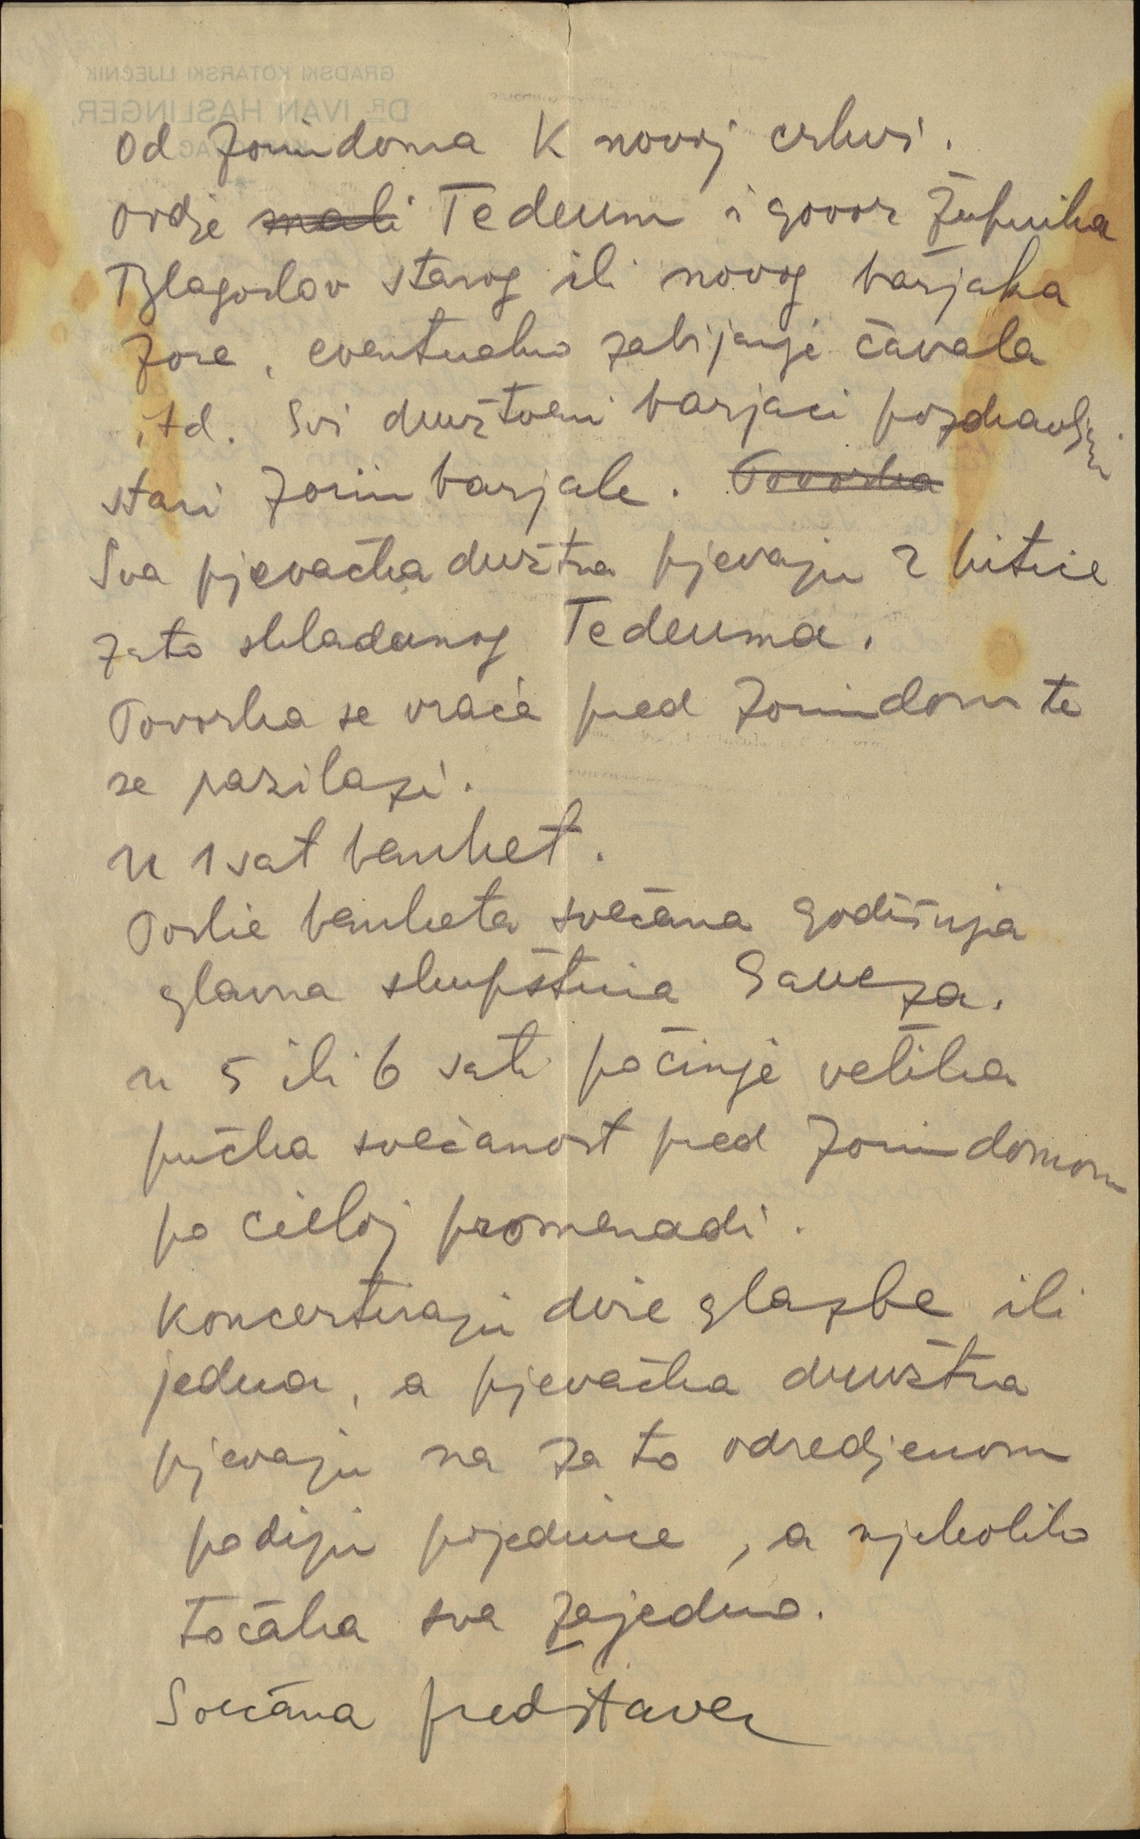 od Zorindoma K novoj crkvi.
ovdje mali Tedeum i govor župnika
Blagoslov starog ili novog barjaka
Zore, eventualno zabijanje čavala
itd. Svi društveni barjaci pozdravljaju
stari Zorin barjak. Povorka
Sva pjevačka društva pjevaju 2 kitice
zato skladanog Tedeuma.
Povorka se vraća pred Zorindom te
se razilazi.
u 1 sat banket.
Poslie banketa svečana godišnja
glavna skupština Saveza.
u 5 ili 6 sati počinje velika
pučka svečanost pred Zorindomom
po cieloj promenadi.
Koncertiraju dvie glazbe ili
jedna, a pjevačka društva
pjevaju na za to odredjenom
podiju pojedince, a njekoliko
točaka sva zajedno.
Svečana predstava
GRADSKI KOTARSKI LIJEČNIK
DR. IVAN HASLINGER,